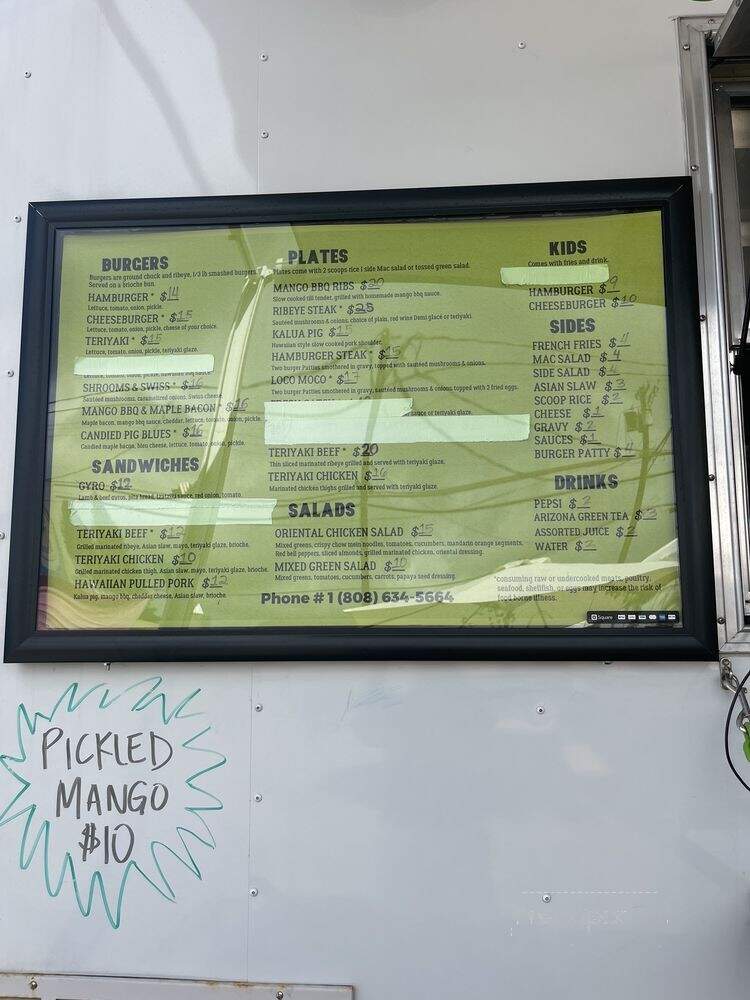 BURGERS
Burgers are ground chuck and ribeye, 1/3 lb smashed burgers.
Served on a brioche bun.
HAMBURGER * $14
Lettuce, tomato, onion, pickle.
CHEESEBURGER * $15
Lettuce, tomato, onion, pickle, cheese of your choice.
TERIYAKI * $15
Lettuce, tomato, onion, pickle, teriyaki glaze.
SHROOMS & SWISS * $16
Sautéed mushrooms, caramelized onions, Swiss cheese.
MANGO BBQ & MAPLE BACON * $16
Maple bacon, mango bbq sauce, cheddar, lettuce, tomato, onion, pickle.
CANDIED PIG BLUES * $16
Candied maple bacon, bleu cheese, lettuce, tomato, onion, pickle.
SANDWICHES
GYRO $12
Lamb & beef gyro, pita bread, tzatziki sauce, red onion, tomato.
TERIYAKI BEEF * $12
Grilled marinated ribeye, Asian slaw, mayo, teriyaki glaze, brioche.
TERIYAKI CHICKEN $10
Grilled marinated chicken thigh, Asian slaw, mayo, teriyaki glaze, brioche.
HAWAIIAN PULLED PORK $12
Kalua pig, mango bbq, cheddar cheese, Asian slaw, brioche.
PLATES
Plates come with 2 scoops rice 1 side Mac salad or tossed green salad.
MANGO BBQ RIBS $20
Slow cooked till tender, grilled with homemade mango bbq sauce.
RIBEYE STEAK * $25
Sautéed mushrooms & onions, choice of plain, red wine Demi glacé or teriyaki.
KALUA PIG $15
Hawaiian style slow cooked pork shoulder.
HAMBURGER STEAK * $15
Two burger Patties smothered in gravy, topped with sautéed mushrooms & onions.
LOCO MOCO * $17
Two burger Patties smothered in gravy, sautéed mushrooms & onions topped with 2 fried eggs.
sauce or teriyaki glaze.
TERIYAKI BEEF * $20
Thin sliced marinated ribeye grilled and served with teriyaki glaze.
TERIYAKI CHICKEN $16
Marinated chicken thighs grilled and served with teriyaki glaze.
SALADS
ORIENTAL CHICKEN SALAD $15
Mixed greens, crispy chow mein noodles, tomatoes, cucumbers, mandarin orange segments,
Red bell peppers, sliced almonds, grilled marinated chicken, oriental dressing.
MIXED GREEN SALAD $10
Mixed greens, tomatoes, cucumbers, carrots, papaya seed dressing.
Phone # 1 (808) 634-5664
KIDS
Comes with fries and drink.
HAMBURGER $9
CHEESEBURGER $10
SIDES
FRENCH FRIES $4
MAC SALAD $4
SIDE SALAD $
ASIAN SLAW $3
SCOOP RICE $2
CHEESE $1
GRAVY $2
SAUCES $1
BURGER PATTY $4
DRINKS
PEPSI $2
ARIZONA GREEN TEA $3
ASSORTED JUICE $2
WATER $2
*consuming raw or undercooked meats, poultry,
seafood, shellfish, or eggs may increase the risk of
food borne illness.
Square
PICKLED
MANGO
$10